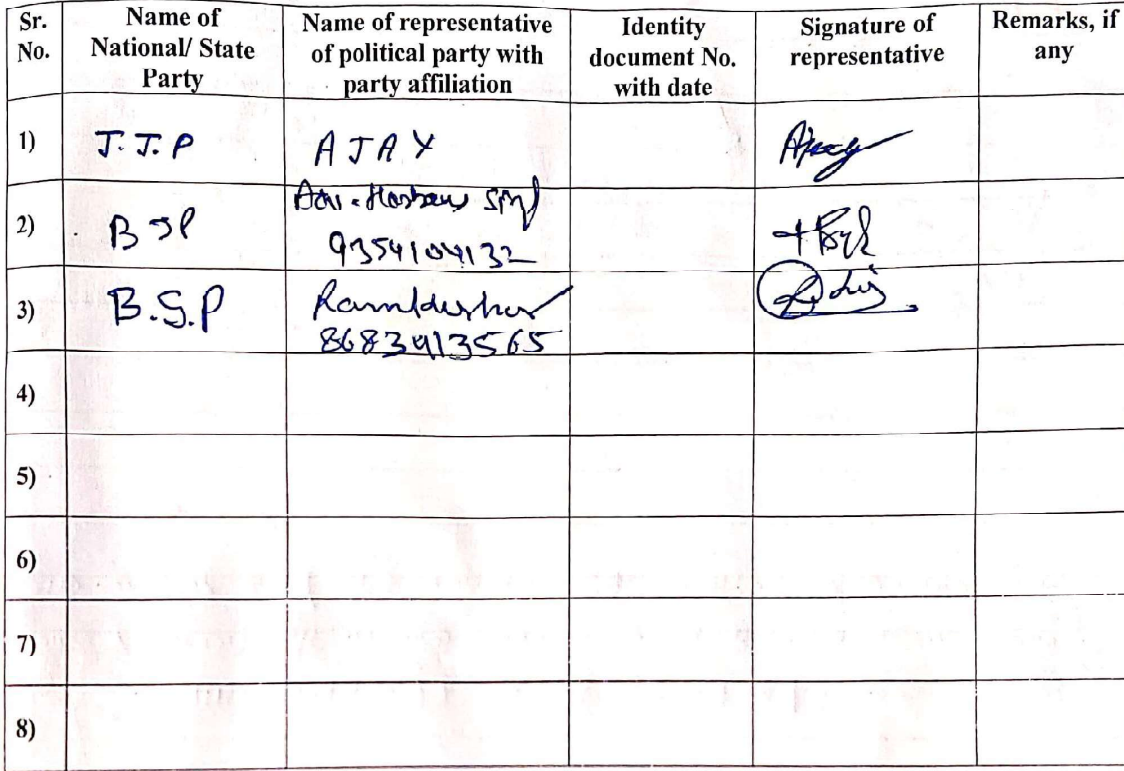 Sr. No.
Name of National/ State Party
Name of representative of political party with party affiliation
Identity document No. with date
Signature of representative
Remarks, if any
1)
J.J.P
AJAY
2)
BJP
9354104132
3)
B.S.P
8683913565
4)
5)
6)
7)
8)